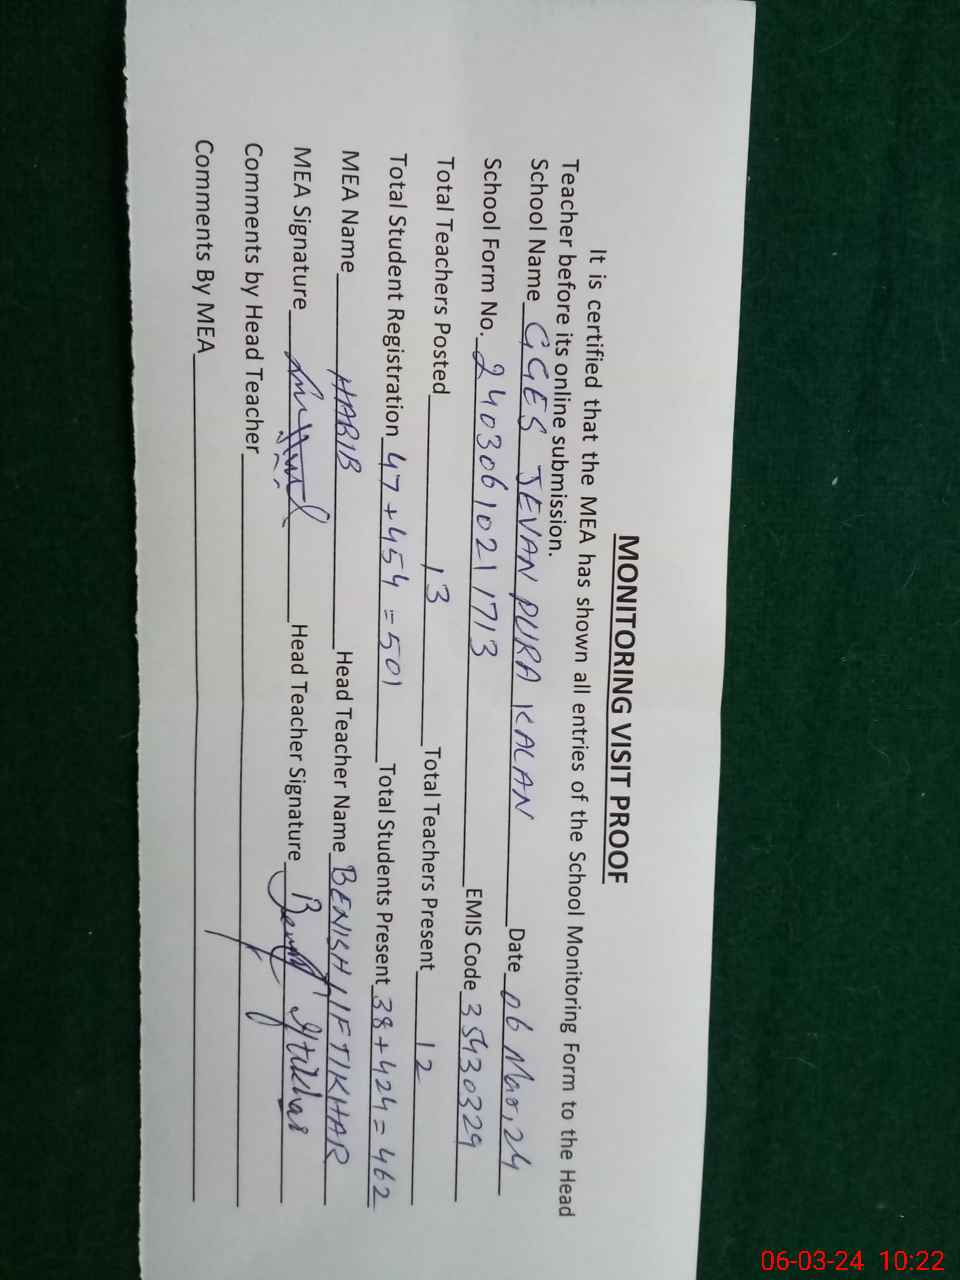 MONITORING VISIT PROOF
It is certified that the MEA has shown all entries of the School Monitoring Form to the Head
Teacher before its online submission.
School Name GGES JEVAN PURA KALAN Date 06 Mar, 24
School Form No. 24030610211713 EMIS Code 35430329
Total Teachers Posted 13 Total Teachers Present 12
Total Student Registration 47+454=501 Total Students Present 38+424=462
MEA Name HABIB Head Teacher Name BENISH IFTIKHAR
MEA Signature Head Teacher Signature Benish Iftikhar
Comments by Head Teacher
Comments By MEA
06-03-24 10:22